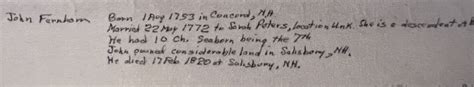 John Fernham Born 1 Aug 1753 in Concord, NH.
Married 22 May 1772 to Sarah Peters, location Unk. She is a descendent of
He had 10 Ch. Seaborn being the 7th
John owned considerable land in Salisbury, NH.
He died 17 Feb 1820 at Salisbury, NH.